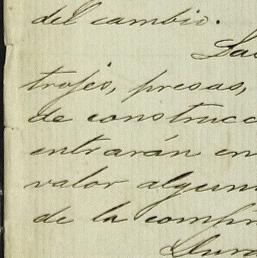 del cambio.
La
trojes, presas,
de construcc
entrarán en
valor algun
de la compr
Dura